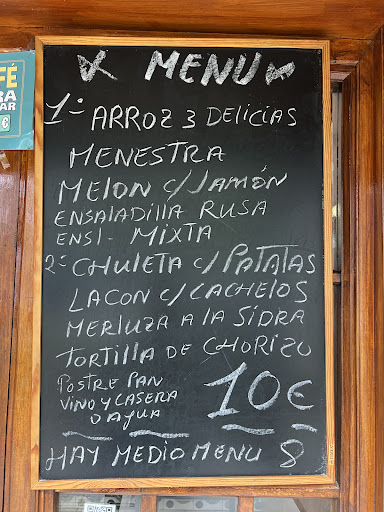 MENU
1º ARROZ 3 DELICIAS
MENESTRA
MELON C/JAMÓN
ENSALADILLA RUSA
ENSL. MIXTA
2º CHULETA C/PATATAS
LACON C/CACHELOS
MERLUZA A LA SIDRA
TORTILLA DE CHORIZO
POSTRE PAN
VINO Y CASERA
O AGUA
10€
HAY MEDIO MENU 8